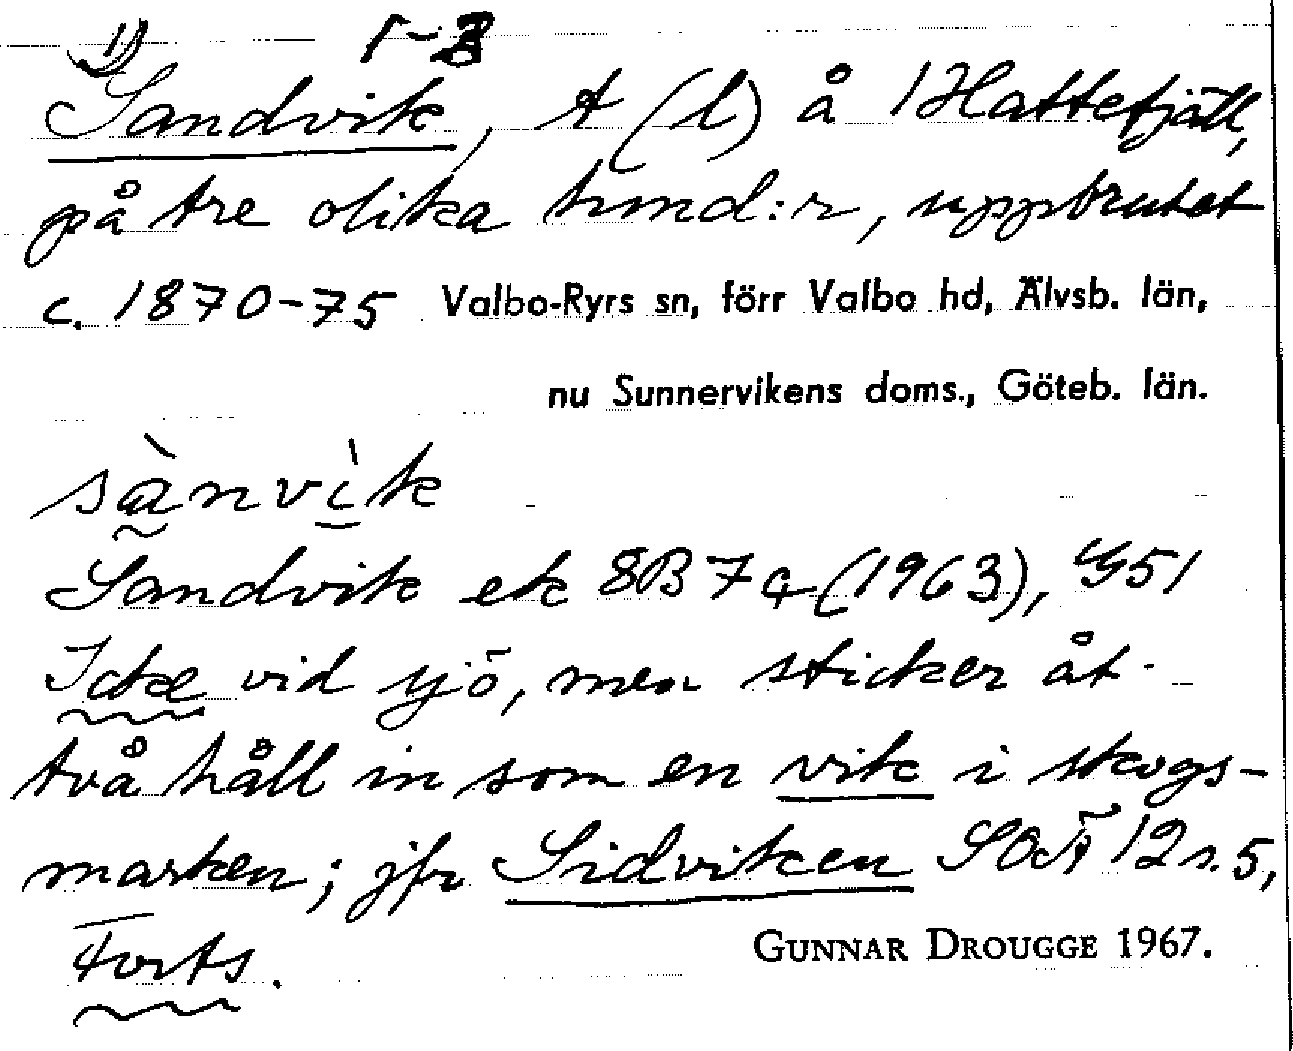 1) 1-3
Sandvik, t (l) å 1 Hattefjäll,
på tre olika hmd:r, uppbrutet
c. 1870-75 Valbo-Ryrs sn, förr Valbo hd, Älvsb. län,
nu Sunnervikens doms., Göteb. län.
sànvìk
Sandvik ek 8B 7a (1963), G51
Icke vid sjö, men sticker åt
två håll in som en vik i skogs-
marken; jfr Sidviken SOÄ 12 s. 5,
Forts. GUNNAR DROUGGE 1967.